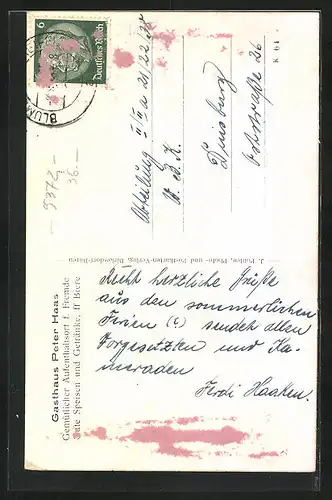 Gasthaus Peter Haas
Gemütlicher Aufenthaltsort f. Fremde
Gute Speisen und Getränke, ff Biere
5372,-
36.-
6
Deutsches Reich
BLUM
J. Püllen, Photo- und Postkarten-Verlag, Birkesdorf-Düren
K 61
Abteilung
V. B. K.
Duisburg
26
Recht herzliche Grüße
aus den sommerlichen
Ferien (?) sendet allen
Vorgesetzten und Ka-
meraden
Ferdi Haaken.